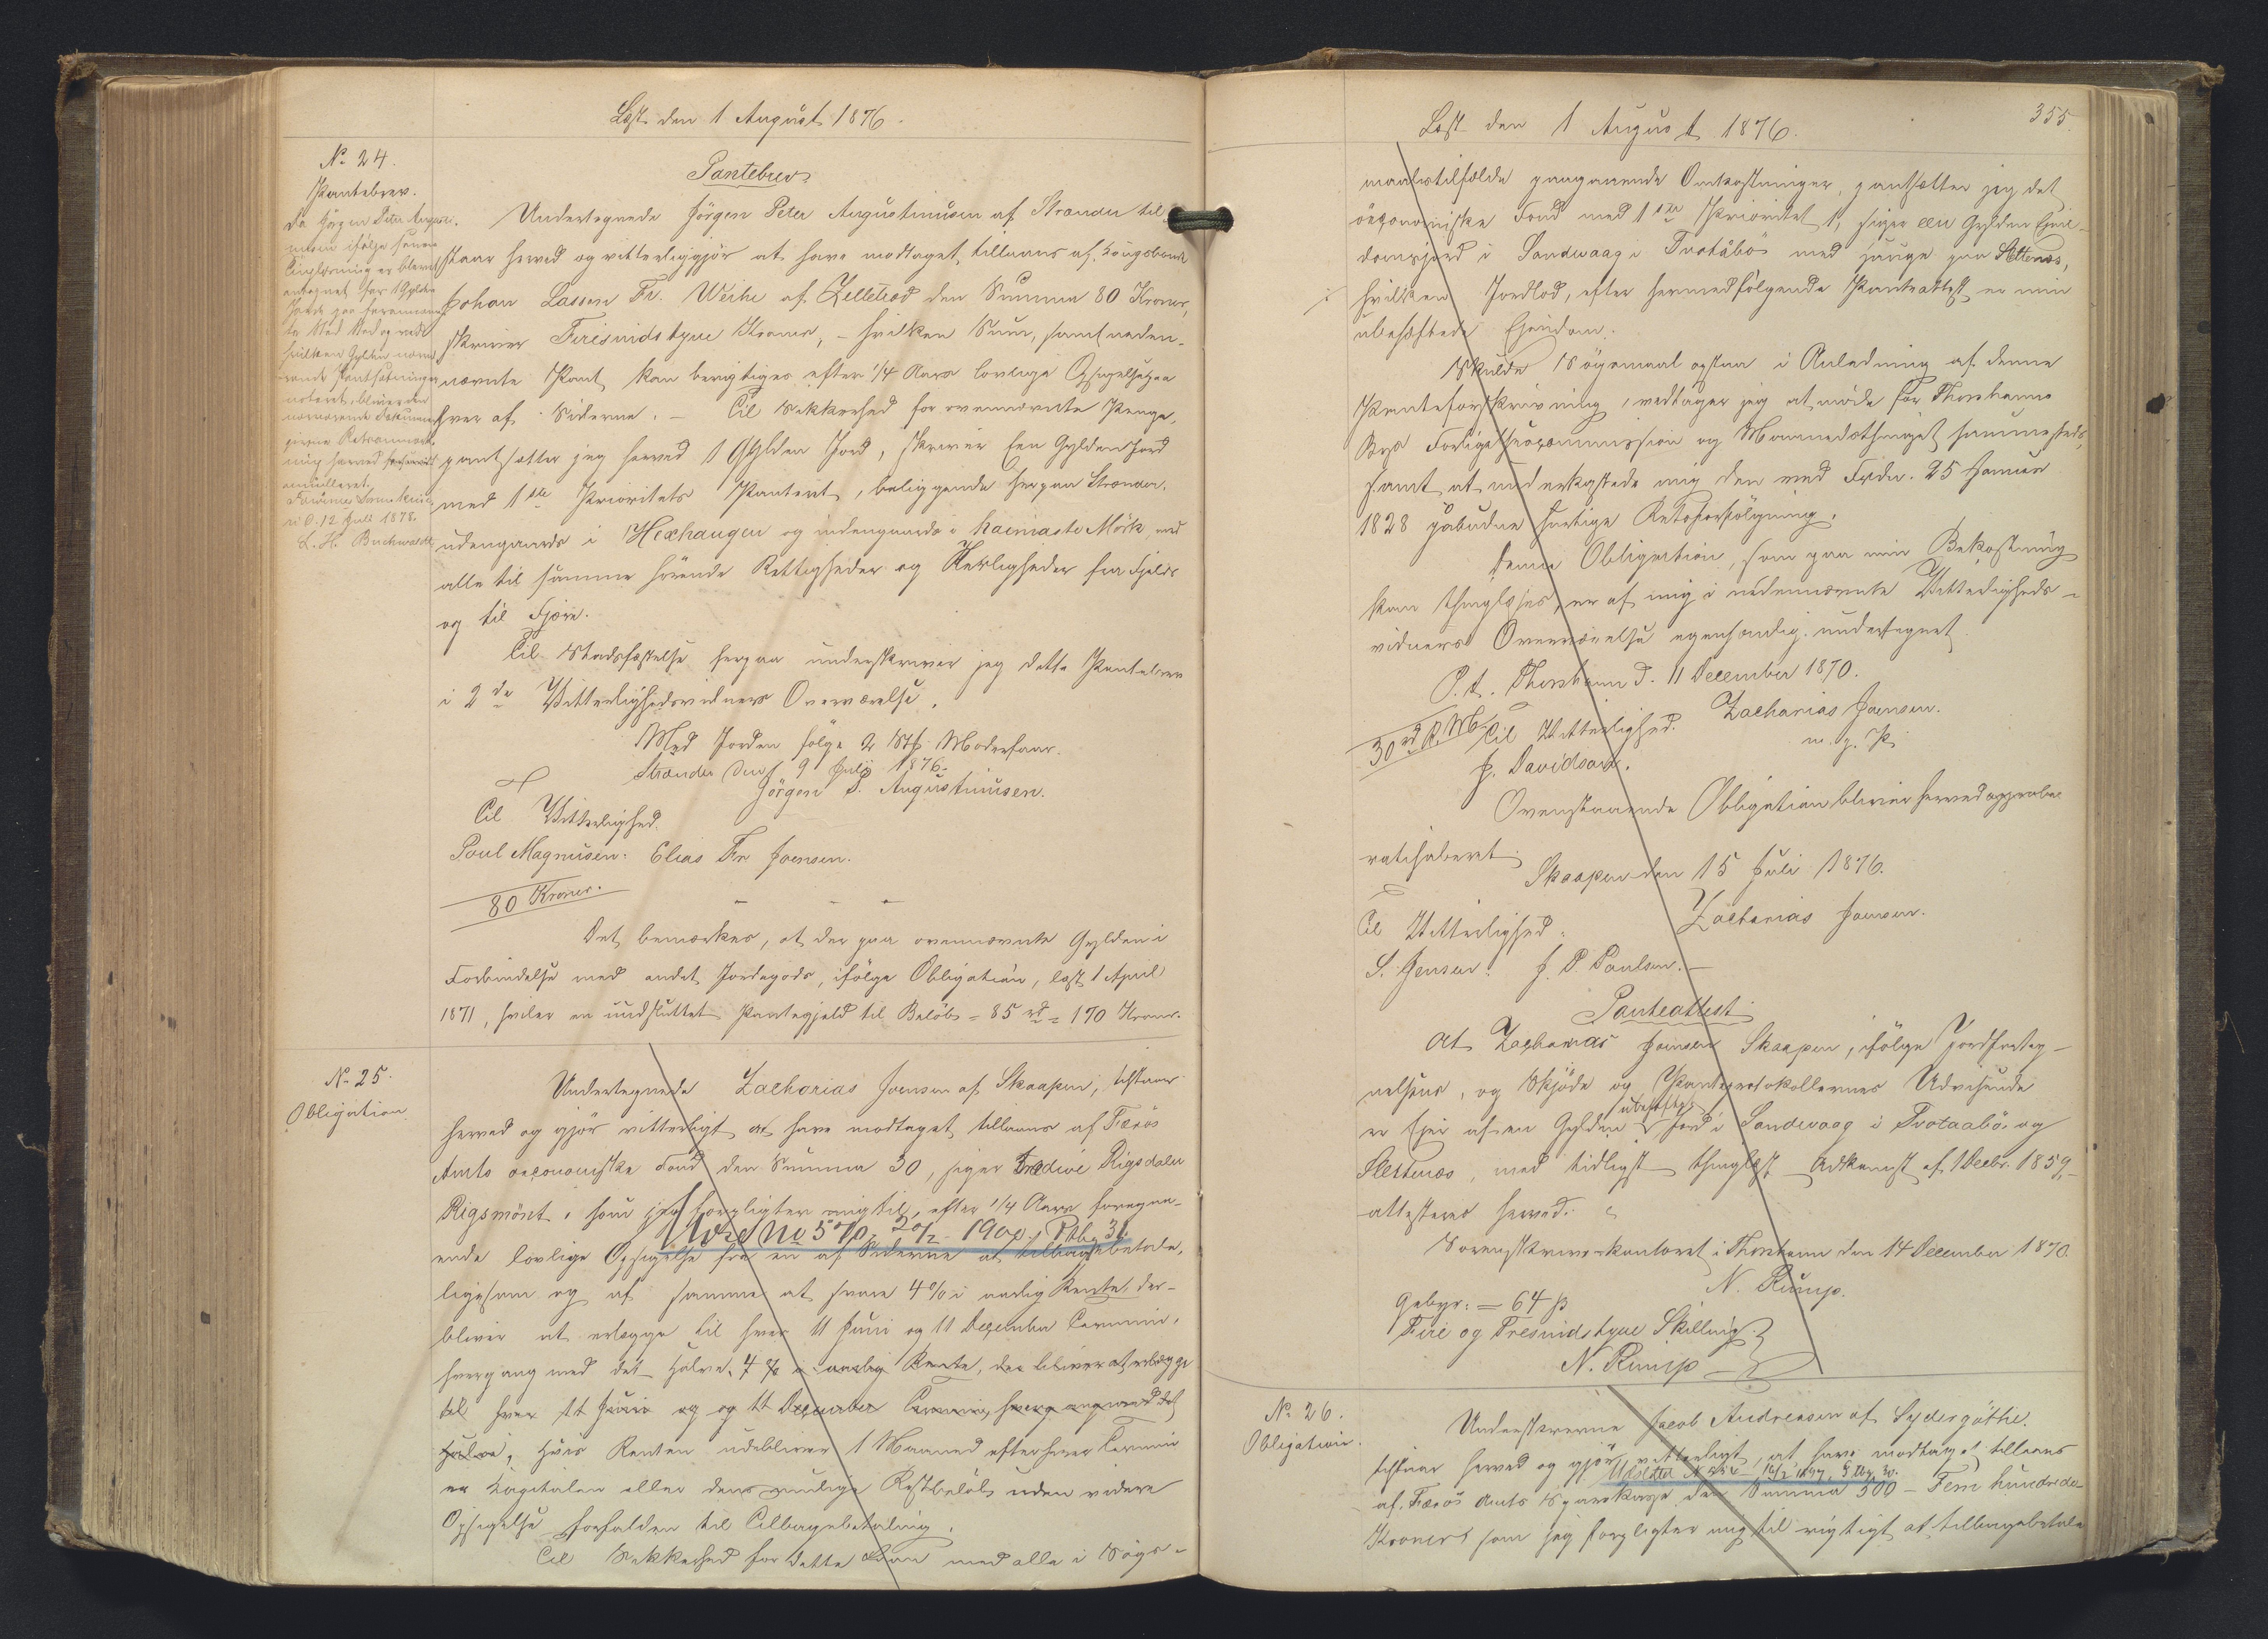 Læst den 1 August 1876.
No 24.
Pantebrev.
Da Jörgen Peter Augusti-
nusen ifölge senere
Tinglæsning er blevet
antegnet for 1 Gylden
Jord paa
Sted
hvilken Gylden
Pantsætning
noteret, bliver den
nærværende
herved
annulleret.
Færöerne Sorenskrive-
ri d. 12 Juli 1878.
L. H. Buchwaldt
Pantebrev
Undertegnede Jörgen Peter Augustinusen af Strænder til-
staar herved og vitterliggjör at have modtaget tillaans af Kongsbonde
Johan Lassen Fr. Weihe af Zelletræd den Summa 80 Kroner,
skriver Firesindstyve Kroner, – hvilken Sum, samt neden-
nævnte Pant kan berigtiges efter 1/4 Aars lovlige Opsigelse fra
hver af Siderne. – Til Sikkerhed for ovennævnte Penge,
pantsætter jeg herved 1 Gylden Jord, skriver Een Gylden Jord
med 1ste Prioritets Panteret, beliggende her paa Strænder,
udengaards i Hexhaugen og indengaards i haemaste Mörk med
alle til samme hörende Rettigheder og Herligheder fra Fjeld
og til Fjære.
Til Stadfæstelse herpaa underskriver jeg dette Pantebrev
i 2de Vitterlighedsvidners Overværelse.
Med Jorden fölge 2 Stk. Moderfaar.
Strænder den 9 Juli 1876.
Jörgen P. Augustinusen.
Til Vitterlighed.
Poul Magnusen. Elias Fr. Joensen.
80 Kroner.
Det bemærkes, at der paa ovennævnte Gylden i
Forbindelse med andet Jordegods, ifölge Obligation, læst 1 April
1871, hviler en uudslettet Pantegjæld til Belöb = 85 rd = 170 Kroner.
No 25.
Obligation
Undertegnede Zacharias Joensen af Skaapen, tilstaar
herved og gjör vitterligt at have modtaget tillaans af Færös
Amts oeconomiske Fond den Summa 30, siger Tredive Rigsdaler
Rigsmönt, som jeg forpligter mig til, efter 1/4 Aars foregaa-
Udsl No 570, 20/2 1900, Ptb. 31.
ende lovlige Opsigelse fra en af Siderne at tilbagebetale,
ligesom og af samme at svare 4% i aarlig Rente, der
bliver at erlægge til hver 11 Juni og 11 December Termin,
hvergang med det Halve, 4 % i aarlig Rente, der bliver at erlægge
til hver 11 Juni og og 11 December Termin, hvergang med det
Halve, Hvis Renten udebliver 1 Maaned efter hver Termin
er Kapitalen eller dens mulige Restbelöb uden videre
Opsigelse forfalden til Tilbagebetaling.
Til Sikkerhed for dette Laan med alle i Sögs-
Læst den 1 August 1876.
355.
maalstilfælde paagaaende Omkostninger, pantsætter jeg det
öeconomiske Fond med 1ste Prioritet 1, siger een Gylden Eien-
domsjord i Sandevaag i Trotäbö med Hauge paa Slettenæs,
hvilken Jordlod, efter hermedfölgende Panteattest er min
ubehæftede Eiendom.
Skulde Sögsmaal opstaa i Anledning af denne
Panteforskrivning, vedtager jeg at möde for Thorshavns
Byes Forligelsescommission og Maanedsthinget sammesteds,
samt at underkaste mig den ved Frdn. 25 Januar
1828 paabudne hurtige Retsforfölgning.
Denne Obligation, som paa min Bekostning
kan thinglæses, er af mig i nedennævnte Vitterligheds-
vidners Overværelse egenhændig undertegnet.
P. t. Thorshavn d. 11 December 1870.
Zacharias Joensen.
m. f. P.
30 rd R. M.
Til Vitterlighed.
J. Davidsen.
Ovenstaaende Obligation bliver herved approbe
ratihaberet.
Skaapen den 15 Juli 1876.
Zacharias Joensen.
Til Vitterlighed:
S. Jensen. J. P. Poulsen.
Panteattest
At Zacharias Joensen Skaapen, ifölge Jordfrateg-
nelsens, og Skjöde og Panteprotokollernes Udvisende
er Eier af en Gylden ubehæftet Jord i Sandevaag i Trotaabö og
Slettenæs, med tidligst thinglæst Adkomst af 1 Decbr. 1859,
attesteres herved.
Sorenskriverkontoret i Thorshavn den 14 December 1870.
N. Rump.
Gebyr: = 64 ß
Fire og Tresindstyve Skilling.
N. Rump
No 26.
Obligation.
Underskrevne Jacob Andreasen af Sydergöthe,
tilstaar herved og gjör vitterligt, at have modtaget tillaans
af Færös Amts Sparekasse den Summa 500 – Fem hundrede
Kroner som jeg forpligter mig til rigtigt at tilbagebetale